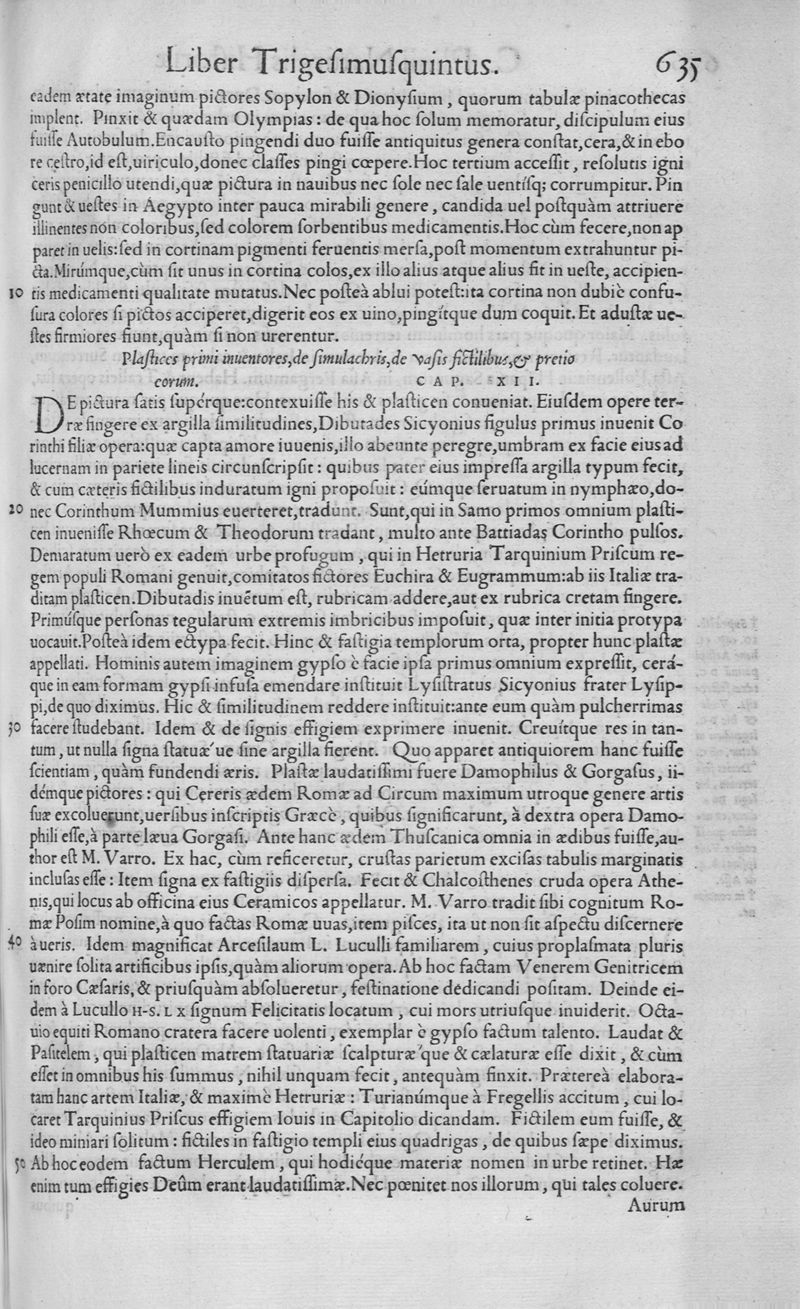 Liber Trigeſimuſquintus. 635
eadem ætate imaginum pictores Sopylon & Dionyſium, quorum tabulæ pinacothecas
implent. Pinxit & quædam Olympias: de qua hoc ſolum memoratur, diſcipulum eius
fuiſſe Autobulum. Encauſto pingendi duo fuiſſe antiquitus genera conſtat, cera, & in ebo
re ceſtro, id eſt, uiriculo, donec claſſes pingi cœpere. Hoc tertium acceſſit, reſolutis igni
ceris penicillo utendi, quæ pictura in nauibus nec ſole nec ſale uentíſq; corrumpitur. Pin
gunt & ueſtes in Aegypto inter pauca mirabili genere, candida uel poſtquàm attriuere
illinentes non coloribus, ſed colorem ſorbentibus medicamentis. Hoc cùm fecere, non ap
paret in uelis: ſed in cortinam pigmenti feruentis merſa, poſt momentum extrahuntur pi-
cta. Mirúmque, cùm ſit unus in cortina colos, ex illo alius atque alius fit in ueſte, accipien-
10 tis medicamenti qualitate mutatus. Nec poſteà ablui poteſt: ita cortina non dubiè confu-
ſura colores ſi pictos acciperet, digerit eos ex uino, pingítque dum coquit. Et aduſtæ ue-
ſtes firmiores fiunt, quàm ſi non urerentur.
Plaſtices primi inuentores, de ſimulachris, de vaſis fictilibus, & pretio
eorum. CAP. XII.
DE pictura ſatis ſupérque: contexuiſſe his & plaſticen conueniat. Eiuſdem opere ter-
ræ fingere ex argilla ſimilitudines, Dibutades Sicyonius figulus primus inuenit Co
rinthi filiæ opera: quæ capta amore iuuenis, illo abeunte peregre, umbram ex facie eius ad
lucernam in pariete lineis circunſcripſit: quibus pater eius impreſſa argilla typum fecit,
& cum cæteris fictilibus induratum igni propoſuit: eúmque ſeruatum in nymphæo, do-
20 nec Corinthum Mummius euerteret, tradunt. Sunt, qui in Samo primos omnium plaſti-
cen inueniſſe Rhœcum & Theodorum tradant, multo ante Battiadas Corintho pulſos.
Demaratum uerò ex eadem urbe profugum, qui in Hetruria Tarquinium Priſcum re-
gem populi Romani genuit, comitatos fictores Euchira & Eugrammum: ab iis Italiæ tra-
ditam plaſticen. Dibutadis inuētum eſt, rubricam addere, aut ex rubrica cretam fingere.
Primúſque perſonas tegularum extremis imbricibus impoſuit, quæ inter initia protypa
uocauit. Poſteà idem ectypa fecit. Hinc & faſtigia templorum orta, propter hunc plaſtæ
appellati. Hominis autem imaginem gypſo è facie ipſa primus omnium expreſſit, cerá-
que in eam formam gypſi infuſa emendare inſtituit Lyſiſtratus Sicyonius frater Lyſip-
pi, de quo diximus. Hic & ſimilitudinem reddere inſtituit: ante eum quàm pulcherrimas
30 facere ſtudebant. Idem & de ſignis effigiem exprimere inuenit. Creuítque res in tan-
tum, ut nulla ſigna ſtatuæ'ue ſine argilla fierent. Quo apparet antiquiorem hanc fuiſſe
ſcientiam, quàm fundendi æris. Plaſtæ laudatiſſimi fuere Damophilus & Gorgaſus, ii-
démque pictores: qui Cereris ædem Romæ ad Circum maximum utroque genere artis
ſuæ excoluerunt, uerſibus inſcriptis Græcè, quibus ſignificarunt, à dextra opera Damo-
phili eſſe, à parte læua Gorgaſi. Ante hanc ædem Thuſcanica omnia in ædibus fuiſſe, au-
thor eſt M. Varro. Ex hac, cùm reficeretur, cruſtas parietum exciſas tabulis marginatis
incluſas eſſe: Item ſigna ex faſtigiis diſperſa. Fecit & Chalcoſthenes cruda opera Athe-
nis, qui locus ab officina eius Ceramicos appellatur. M. Varro tradit ſibi cognitum Ro-
mæ Poſim nomine, à quo factas Romæ uuas, item piſces, ita ut non ſit aſpectu diſcernere
40 à ueris. Idem magnificat Arceſilaum L. Luculli familiarem, cuius proplaſmata pluris
uænire ſolita artificibus ipſis, quàm aliorum opera. Ab hoc factam Venerem Genitricem
in foro Cæſaris, & priuſquàm abſolueretur, feſtinatione dedicandi poſitam. Deinde ei-
dem à Lucullo H-S. LX ſignum Felicitatis locatum, cui mors utriuſque inuiderit. Octa-
uio equiti Romano cratera facere uolenti, exemplar è gypſo factum talento. Laudat &
Paſitelem, qui plaſticen matrem ſtatuariæ ſcalpturæ'que & cælaturæ eſſe dixit, & cùm
eſſet in omnibus his ſummus, nihil unquam fecit, antequàm finxit. Prætereà elabora-
tam hanc artem Italiæ, & maximè Hetruriæ: Turianúmque à Fregellis accitum, cui lo-
caret Tarquinius Priſcus effigiem Iouis in Capitolio dicandam. Fictilem eum fuiſſe, &
ideo miniari ſolitum: fictiles in faſtigio templi eius quadrigas, de quibus ſæpe diximus.
50 Ab hoc eodem factum Herculem, qui hodiéque materiæ nomen in urbe retinet. Hæ
enim tum effigies Deûm erant laudatiſſimæ. Nec pœnitet nos illorum, qui tales coluere.
Aurum